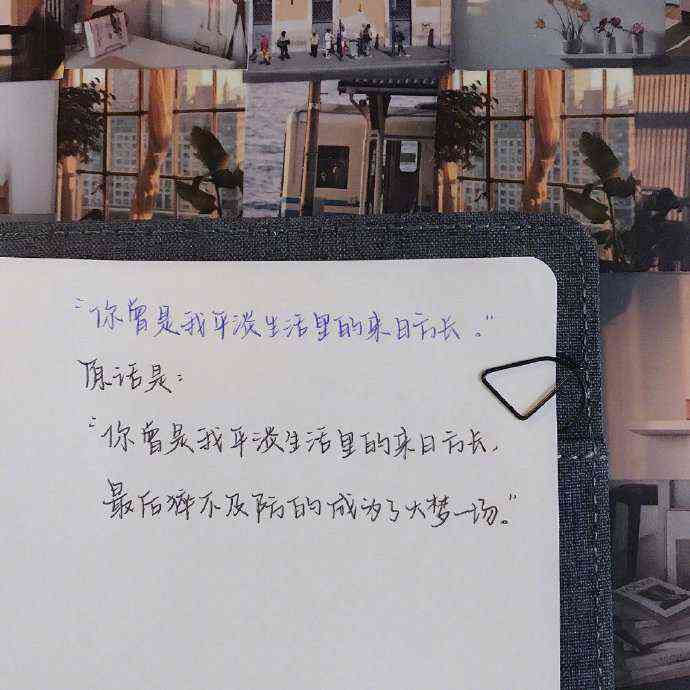 “你曾是我平淡生活里的来日方长。”
原话是：
“你曾是我平淡生活里的来日方长，
最后猝不及防的成为了大梦一场。”